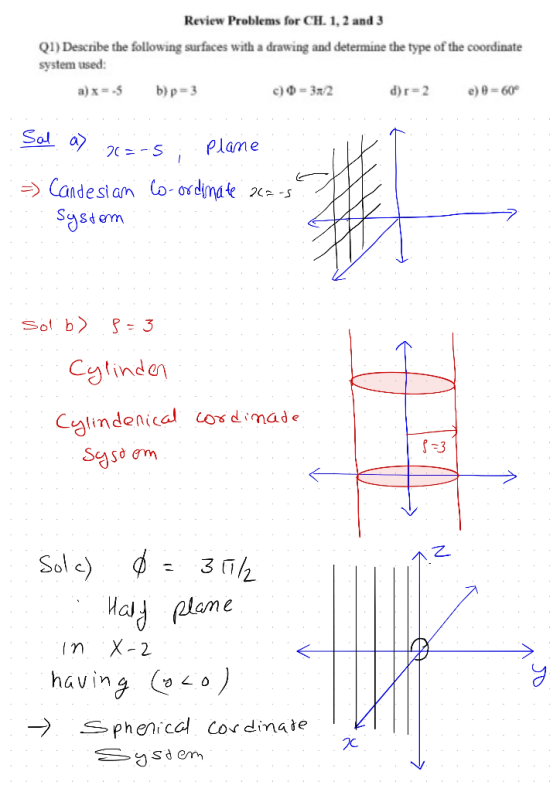 Review Problems for CH. 1, 2 and 3
Q1) Describe the following surfaces with a drawing and determine the type of the coordinate
system used:
a) x = -5 b) ρ = 3 c) Φ = 3π/2 d) r = 2 e) θ = 60°
Sol a) x = -5, plane
⇒ Cartesian Co-ordinate
System
x = -5
Sol b) ρ = 3
Cylinder
Cylinderical cordinate
System
ρ=3
Sol c) ϕ = 3π/2
Half plane
in X-Z
having (y<0)
→ Spherical cordinate
System
z
y
x